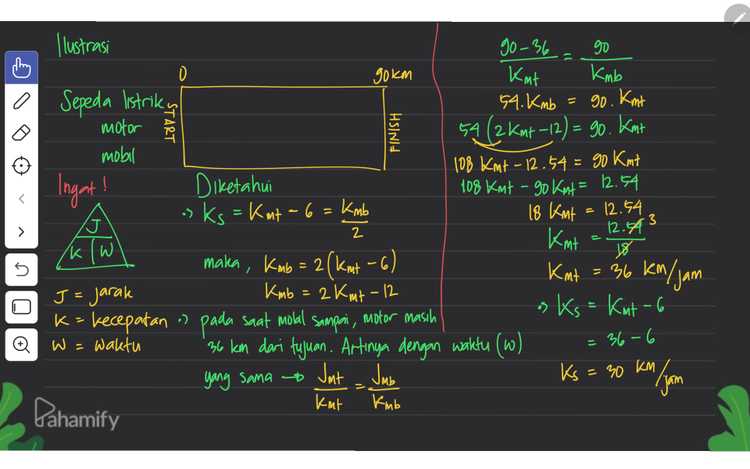 Ilustrasi
0 90 km
Sepeda listrik
motor
mobil
START
FINISH
Ingat !
J
K W
J = jarak
K = kecepatan
W = waktu
Diketahui
•> Ks = Kmt - 6 = Kmb/2
maka, Kmb = 2(Kmt - 6)
Kmb = 2 Kmt - 12
•> pada saat mobil sampai, motor masih
36 km dari tujuan. Artinya dengan waktu (w)
yang sama → Jmt/Kmt = Jmb/Kmb
90-36/Kmt = 90/Kmb
54. Kmb = 90. Kmt
54 (2 Kmt - 12) = 90. Kmt
108 Kmt - 12.54 = 90 Kmt
108 Kmt - 90 Kmt = 12.54
18 Kmt = 12.54
Kmt = 12.54/18 3
Kmt = 36 km/jam
•> Ks = Kmt - 6
= 36 - 6
Ks = 30 km/jam
Pahamify